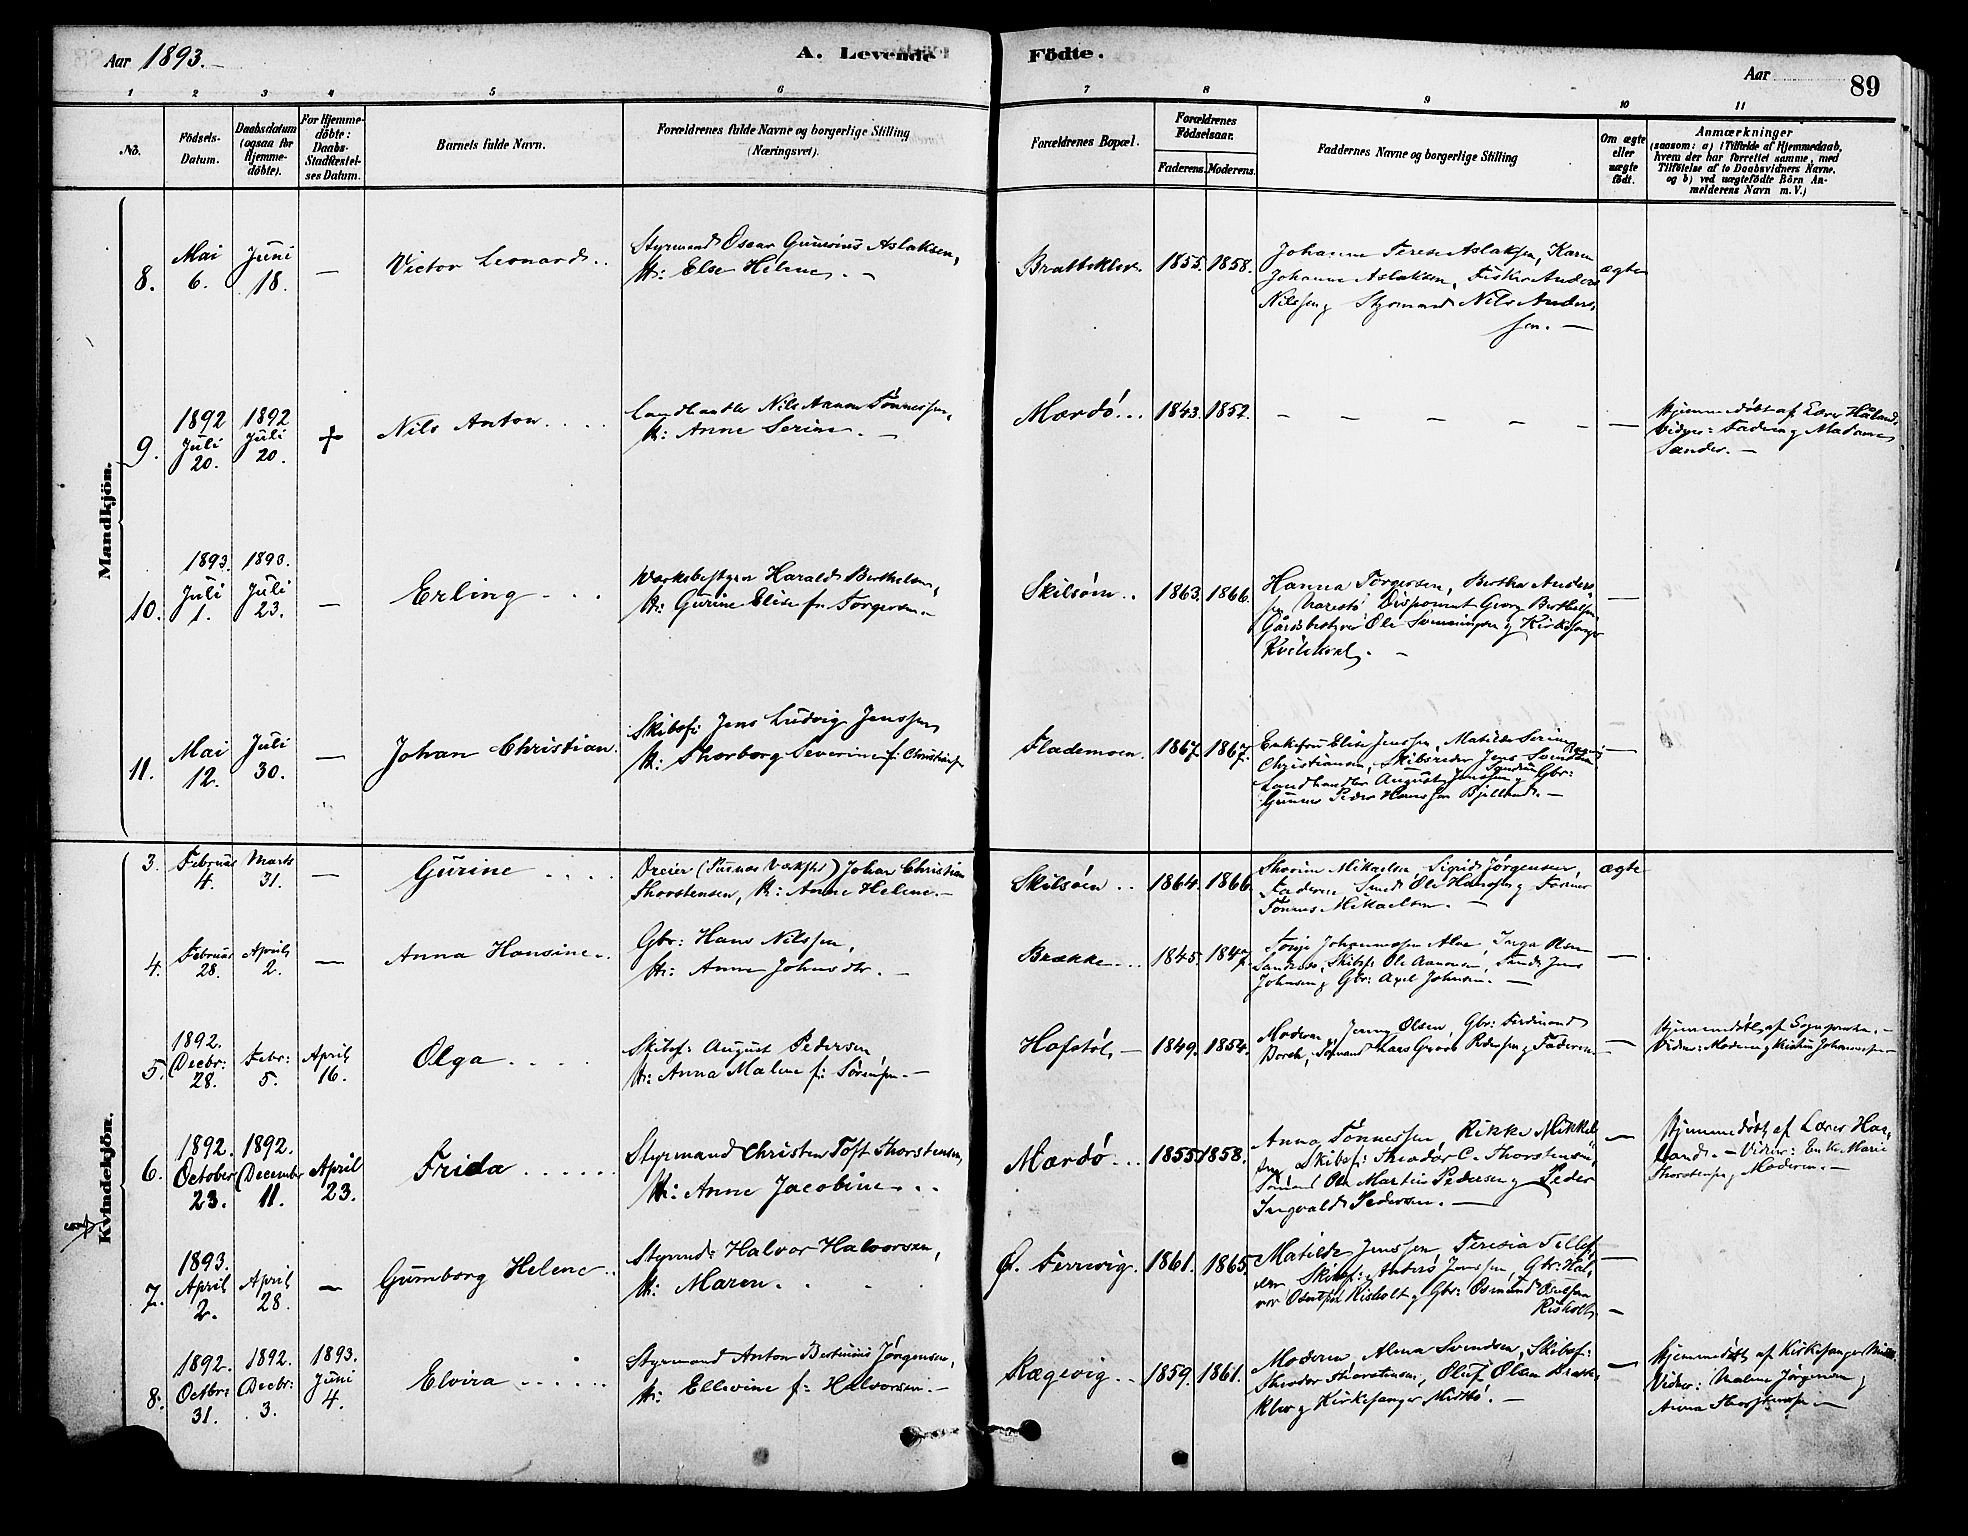 Aar 1893.
A. Levende Födte.
Aar
89
1 2 3 4 5 6 7 8 9 10 11
No.
Födsels-Datum.
Daabsdatum (ogsaa for Hjemme-döbte).
For Hjemme-döbte: Daabs-Stadfæstel-ses Datum.
Barnets fulde Navn.
Forældrenes fulde Navne og borgerlige Stilling (Næringsvei).
Forældrenes Bopæl.
Forældrenes Födselsaar.
Faderens. Moderens.
Faddernes Navne og borgerlige Stilling
Om ægte eller uægte födt.
Anmærkninger
(saasom: a) i Tilfælde af Hjemmedaab,
hvem der har forrettet samme, med
Tilföielse af to Daabsvidners Navne,
og b) ved uægtefödte Börn An-
melderens Navn m. V.)
Mandkjön.
8. Mai 6. Juni 18. — Victor Leonard..
Styrmand Oscar Gunerius Aslaksen,
H: Else Helene. —
Bratteklev. 1855. 1858.
Johanne Terese Aslaksen, Karen
Johanne Aslaksen, Fisker Anders
Nilssen, Styrmand Nils Anders-
sen. —
ægte
9. 1892 Juli 20. 1892 Juli 20. + Nils Anton....
Landhandler Nils Aanon Tønnessen,
H: Anne Serine. —
Mærdö... 1843. 1852. — — — — — —
Hjemmedøbt af Lærer Haaland,
Vidner: Faderen og Madame
Sander. —
10. 1893. Juli 1. 1893. Juli 23. — Erling...
Værksbestyrer Harald Berthelsen,
H: Gurine Elise f. Torgersen —
Skilsöen.. 1863. 1866.
Hanna Torgersen, Bertha Anders-
sen Narestö, Disponent Georg Berthelsen
Gårdsbestyrer Ole Svenningsen og Kirkesanger
—
11. Mai 12. Juli 30. — Johan Christian.
Skibsf: Jens Ludvig Jenssen
H: Thorborg Severine f: Christians
Flademoen. 1867. 1867.
Enkefru Elise Jenssen, Matilde Serine
Christiansen, Skibsreder Jens Svendsen
Landhandler August Jenssen og Gbr:
Gunner Peder Hanssen Bjelland. —
—
Kvindekjön.
3. Februar 4. Marts 31. — Gurine....
Dreier (Pusnes Værksted) Johan Christian
Thorstensen, H: Anne Helene. —
Skilsöen.. 1864. 1866.
Thorine Mikaelsen, Sigrid Jørgensen,
Faderen, Smed Ole Hansen og Former
Tønnes Mikaelsen. —
ægte
4. Februar 28. April 2. — Anna Hansine..
Gbr: Hans Nilssen,
H: Anne Johnsdtr. —
Brække... 1845. 1847.
Torje Johannessen Alve, Inga Olsen
Sandnes, Skibsf: Ole Aanonsen, Smed Jens
Johnsen og Gbr: Axel Johnsen. —
—
5. 1892. Decbr: 28. Febr: 5. April 16. Olga....
Skibsf: August Pedersen
H: Anna Malene f: Sörensen. —
Hofstöl — 1849. 1854.
Moderen, Jenny Olsen, Gbr: Ferdinand
Borch, Sømand Lars Pedersen og Faderen —
—
Hjemmedøbt af Sognepresten. —
Vidner: Moderen og Kristine Johannessen —
6. 1892. October 23. 1892. December 11. April 23. Frida......
Styrmand Christen Toft Thorstensen,
H: Anne Jacobine...
Mærdö... 1855. 1858.
Anna Tønnessen, Rikke Mikkel-
sen, Skibsf: Theodor C. Thorstensen,
Sømand Ole Martin Pedersen og Peder
Ingvald Pedersen. —
—
Hjemmedøbt af Lærer Haa-
land. — Vidner: Enke Marie
Thorstensen og Moderen. —
7. 1893. April 2. April 28. — Gumborg Helene..
Styrmd: Halvor Halvorsen,
H: Maren..
Ø. Ferrevig. 1861. 1865.
Matilde Jenssen, Teresia Tellef-
sen, Skibsf: Anders Jenssen, Gbr: Hal-
vor Risholt og Gbr: Osmund Osulfsen
Risholt.
—
8. 1892. Octbr: 31. 1892. Decbr: 3. 1893. Juni 4. Elvira......
Styrmand Anton Bertinius Jörgensen,
H: Ellevine f: Halvorsen. —
Rægevig.. 1859. 1861.
Moderen, Alma Svendsen, Skibsf:
Theodor Thorstensen, Oluf Olsen Bratte-
klev og Kirkesanger Midtbö. —
—
Hjemmedøbt af Kirkesanger
Vidner: Maline Jørgensen og
Anna Thorstensen —